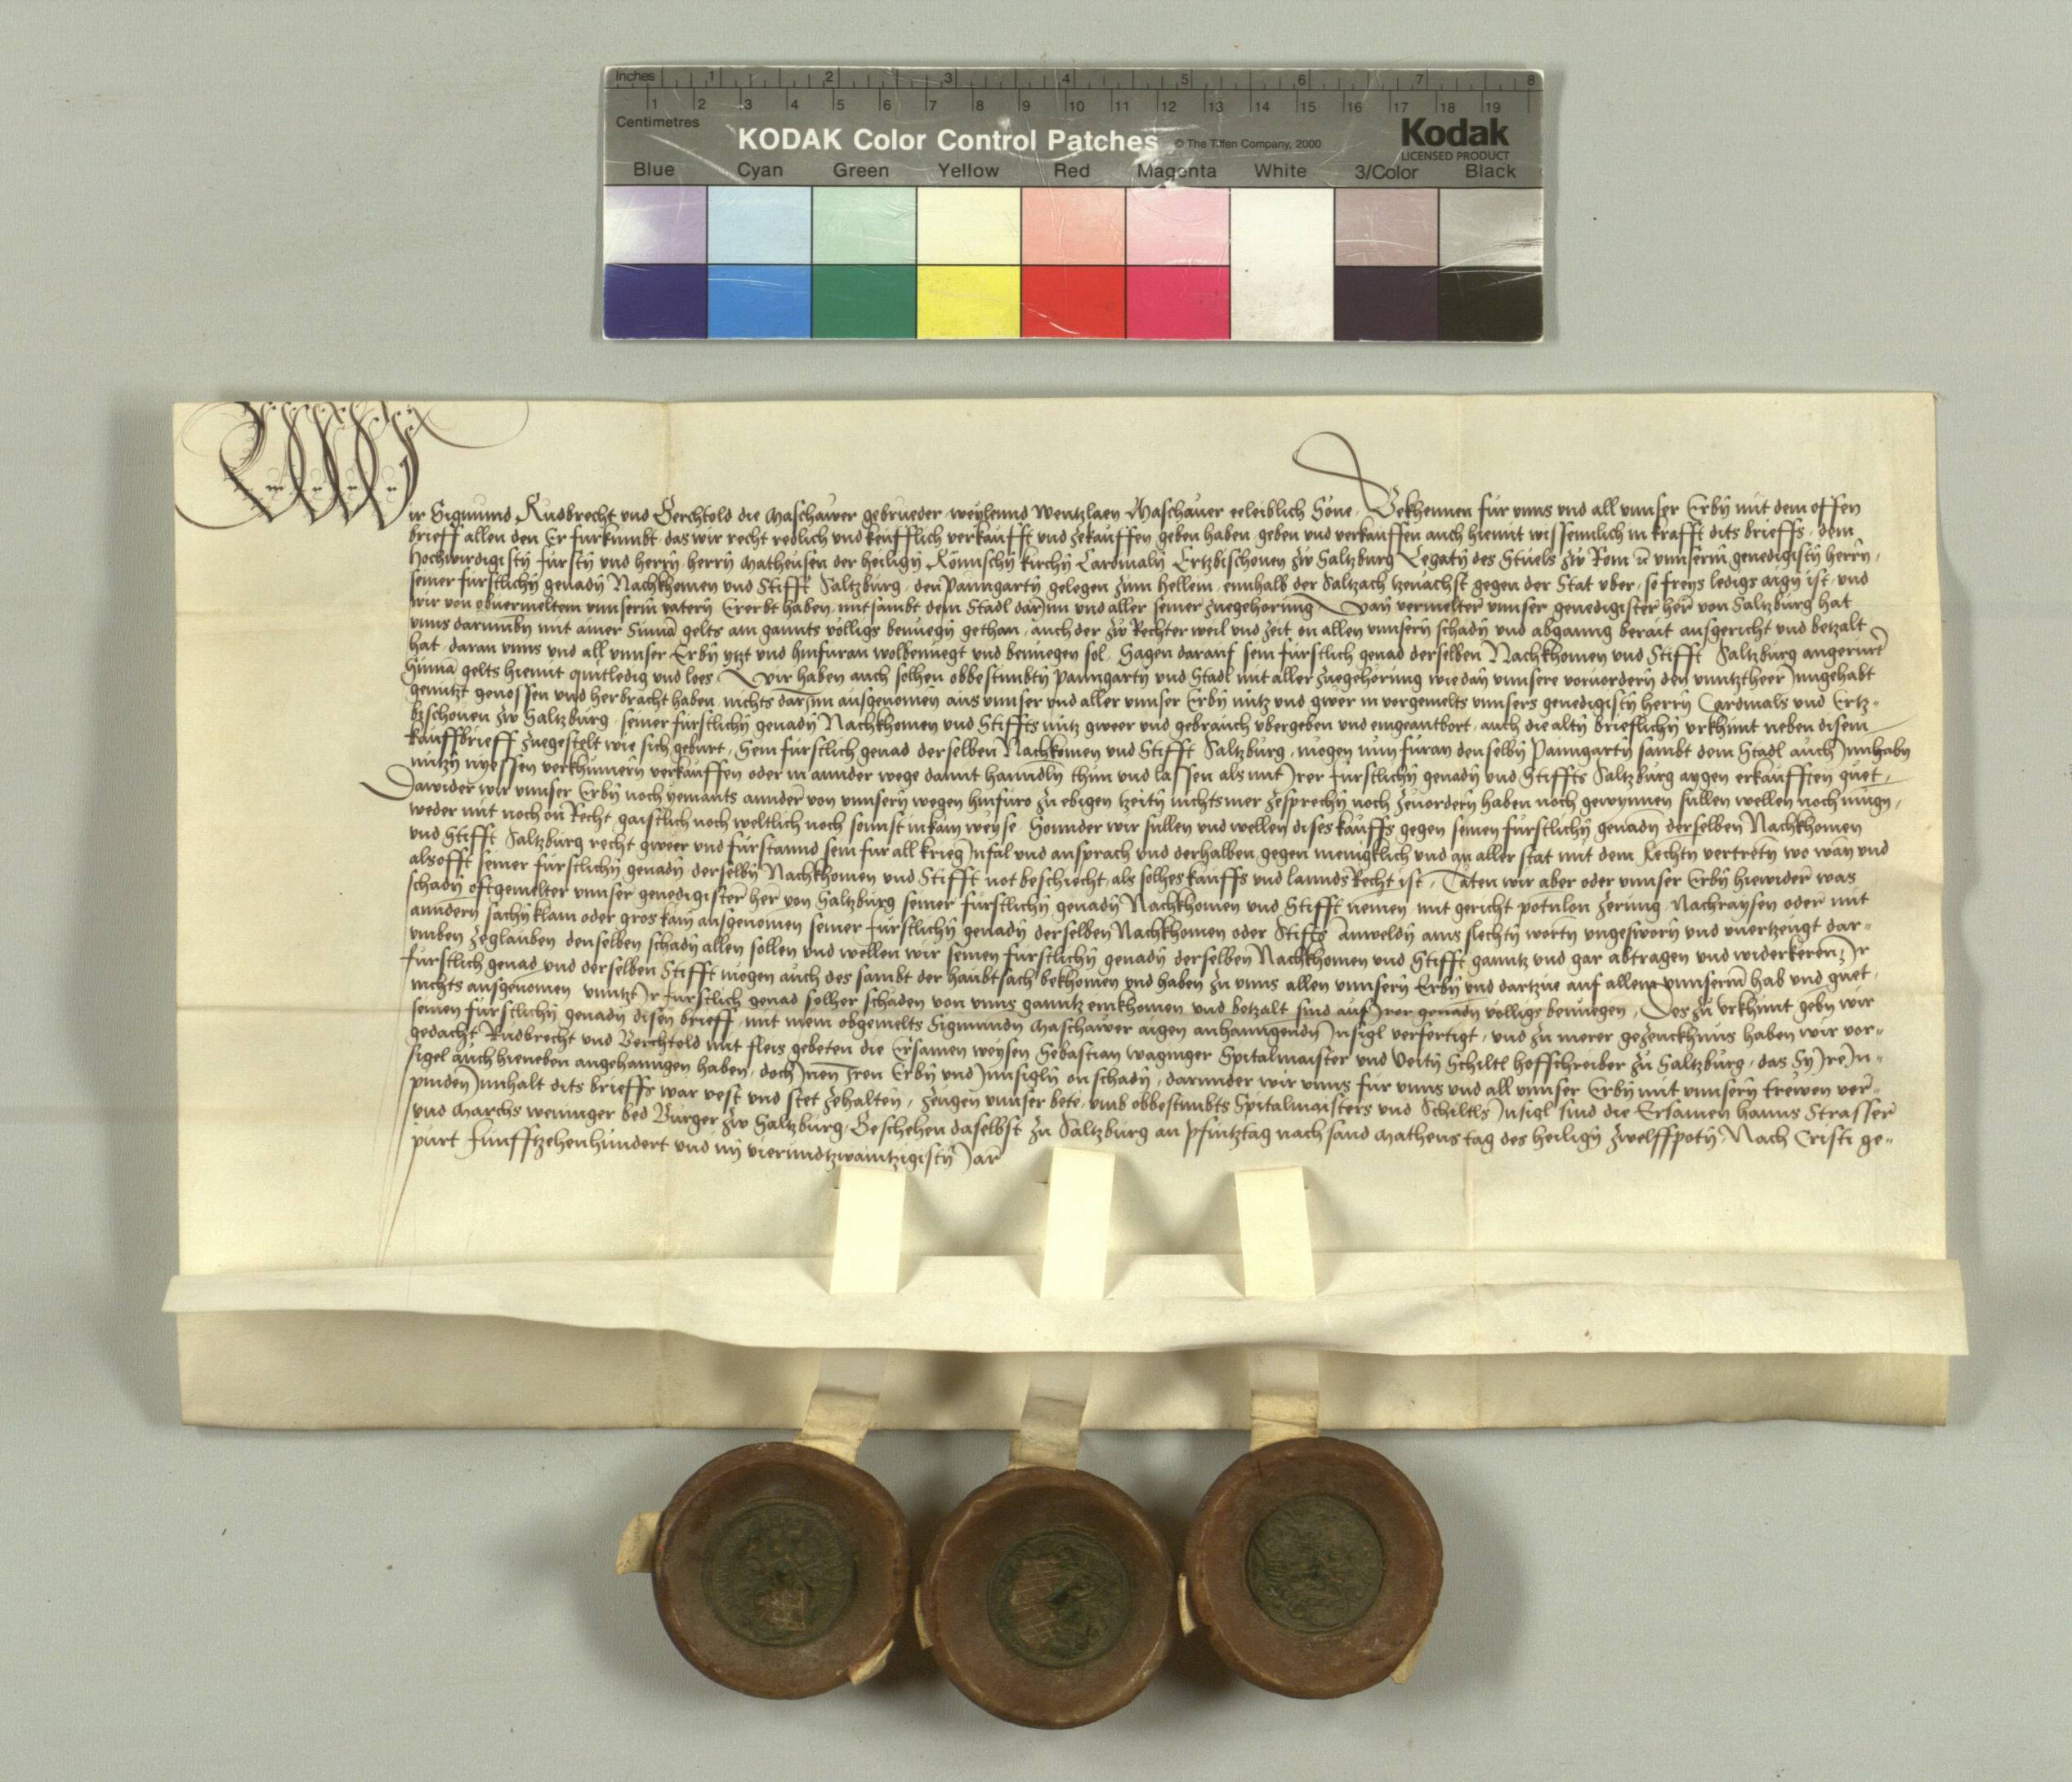 Inches 1 2 3 4 5 6 7 8
1 2 3 4 5 6 7 8 9 10 11 12 13 14 15 16 17 18 19
Centimetres
KODAK Color Control Patches © The Tiffen Company, 2000 Kodak
LICENSED PRODUCT
Blue Cyan Green Yellow Red Magenta White 3/Color Black
Wir Sigmund Rudbrecht vnd Berchtold die Maschawer gebrueder weylennd Wentzlaen Maschauer eeleiblich Söne Bekhennen für vnns vnd all vnnser Erbn mit dem offen
brieff allen den Er fürkumbt das wir recht redlich vnd keufflich verkaufft vnd zekauffen geben haben geben vnd verkauffen auch hiemit wissenntlich in krafft dits brieffs dem
Hochwirdigistn fürstn vnd herrn herrn Matheusen der heilign Römischn kirchn Cardinaln Ertzbischouen zw Saltzburg Legatn des Stuels zw Rom vnnserm genedigistn herrn
seiner fürstlichn genadn Nachkhomen vnd Stifft Saltzburg den Pamgartn gelegen zum Hellein ennhalb der Saltzach zenachst gegen der Stat vber so freys ledigs aign ist vnd
wir von obuermeltem vnnserm vatern Ererbt haben mitsambt dem Stadl darInn vnd aller seiner zuegehörung Dan vermelter vnnser genedigister herr von Saltzburg hat
vnns darumbn mit ainer Suma gelts ain ganntz völligs benuegn gethan auch der zw Rechter weil vnd zeit on allen vnnsern schadn vnd abganng berait ausgericht vnd betzalt
hat daran vnns vnd all vnnser Erbn ytzt vnd hinfüran wolbenuegt vnd benuegen sol Sagen darauf sein fürstlich genad derselben Nachkhomen vnd Stifft Saltzburg angerurt
Suma gelts hiemit quitledig vnd loes Wir haben auch solhen obbestimbtn Pamgartn vnd Stadl mit aller zuegehörung wie dan vnnsere voruordern den vnntzther Inngehabt
genutzt genossen vnd herbracht haben nichts darInn ausgenomen aus vnnser vnd aller vnnser Erbn nütz vnd gwer in vorgemelts vnnsers genedigistn herrn Cardinals vnd Ertz-
bischouen zw Saltzburg seiner fürstlichn genadn Nachkhomen vnd Stiffts nütz gweer vnd gebrauch vbergeben vnd eingeantbort auch die altn brieflichn vrkhünt neben disem
kauffbrieff zuegestelt wie sich geburt Sein fürstlich genad derselben Nachkomen vnd Stifft Saltzburg mögen nun füran denselbn Pamgartn sambt dem Stadl auch Innhabn
nutzn nyessen verkhumern verkauffen oder in annder wege damit hanndln thun vnd lassen als mit Irer fürstlichn genadn vnd Stiffts Saltzburg aygen erkaufften guet
Dawider wir vnnser Erbn noch yemants annder von vnnsern wegen hinfüro zu ebigen tzeitn nichtsmer zesprechn noch zeuordern haben noch gewynnen sullen wellen noch mügn
weder mit noch on Recht gaistlich noch weltlich noch sonnst in kain weyse Sonnder wir sullen vnd wellen dises kauffs gegen seinen fürstlichn genadn derselben Nachkhomen
vnd Stifft Saltzburg recht gweer vnd fürstannd sein für all krieg Infal vnd ansprach vnd derhalben gegen menigklich vnd an aller stat mit dem Rechtn vertretn wo wan vnd
alsofft seiner fürstlichn genadn derselbn Nachkhomen vnd Stifft not beschiecht als solhes kauffs vnd lannds Recht ist Täten wir aber oder vnnser Erbn hiewider was
schadn oftgemelter vnnser genedigister herr von Saltzburg seiner fürstlichn genadn Nachkhomen vnd Stifft nemen mit gericht potnlon zerung Nachraysen oder mit
anndern sachn klain oder gros kain ausgenomen seiner fürstlichn genadn derselben Nachkhomen oder Stiffts Anweldn ains slechtn wortn vngesworn vnd vnertzeugt dar-
umben zeglauben denselben schadn allen sollen vnd wellen wir seinen fürstlichn genadn derselben Nachkhomen vnd Stifft ganntz vnd gar abtragen vnd widerkeren Ir
fürstlich genad vnd derselben Stifft mögen auch des sambt der haubtsach bekhomen vnd haben zu vnns allen vnnsern Erbn vnd dartzue auf allem vnnserm hab vnd guet
nichts ausgenomen vnntzt Ir fürstlich genad solher schäden von vnns ganntz einkhomen vnd betzalt sind auf Irer genadn völligs benuegen Des zu vrkhunt gebn wir
seinen fürstlichn genadn disen brieff mit mein obgemelts Sigmundn Maschawer aigen anhanngendn Insigl verfertigt vnd zu merer gezeuckhnus haben wir vor-
gedacht Rudbrecht vnd Berchtold mit fleis gebeten die Ersamen weysen Sebastian Waginger Spitalmaister vnd Veitn Schiltl hofschreiber zu Saltzburg das Sy Ire In-
sigel auch hieneben angehanngen haben doch Inen Iren Erbn vnd Innsigln on schadn darunder wir vnns für vnns vnd all vnnser Erbn mit vnnsern trewen ver-
pinden Innhalt dits brieffs war vest vnd stet zehalten Zeugen vnnser bete vmb obbestimbts Spitalmaisters vnd Schiltls Insigl sind die Ersamen Hanns Strasser
vnd Marchs Wenniger bed Burger zw Saltzburg Beschehen daselbst zu Saltzburg an Pfintztag nach sand Matheus tag des heilign zwelffpotn Nach Cristi ge-
purt Funfftzehenhundert vnd im vierundtzwaintzigistn Jar